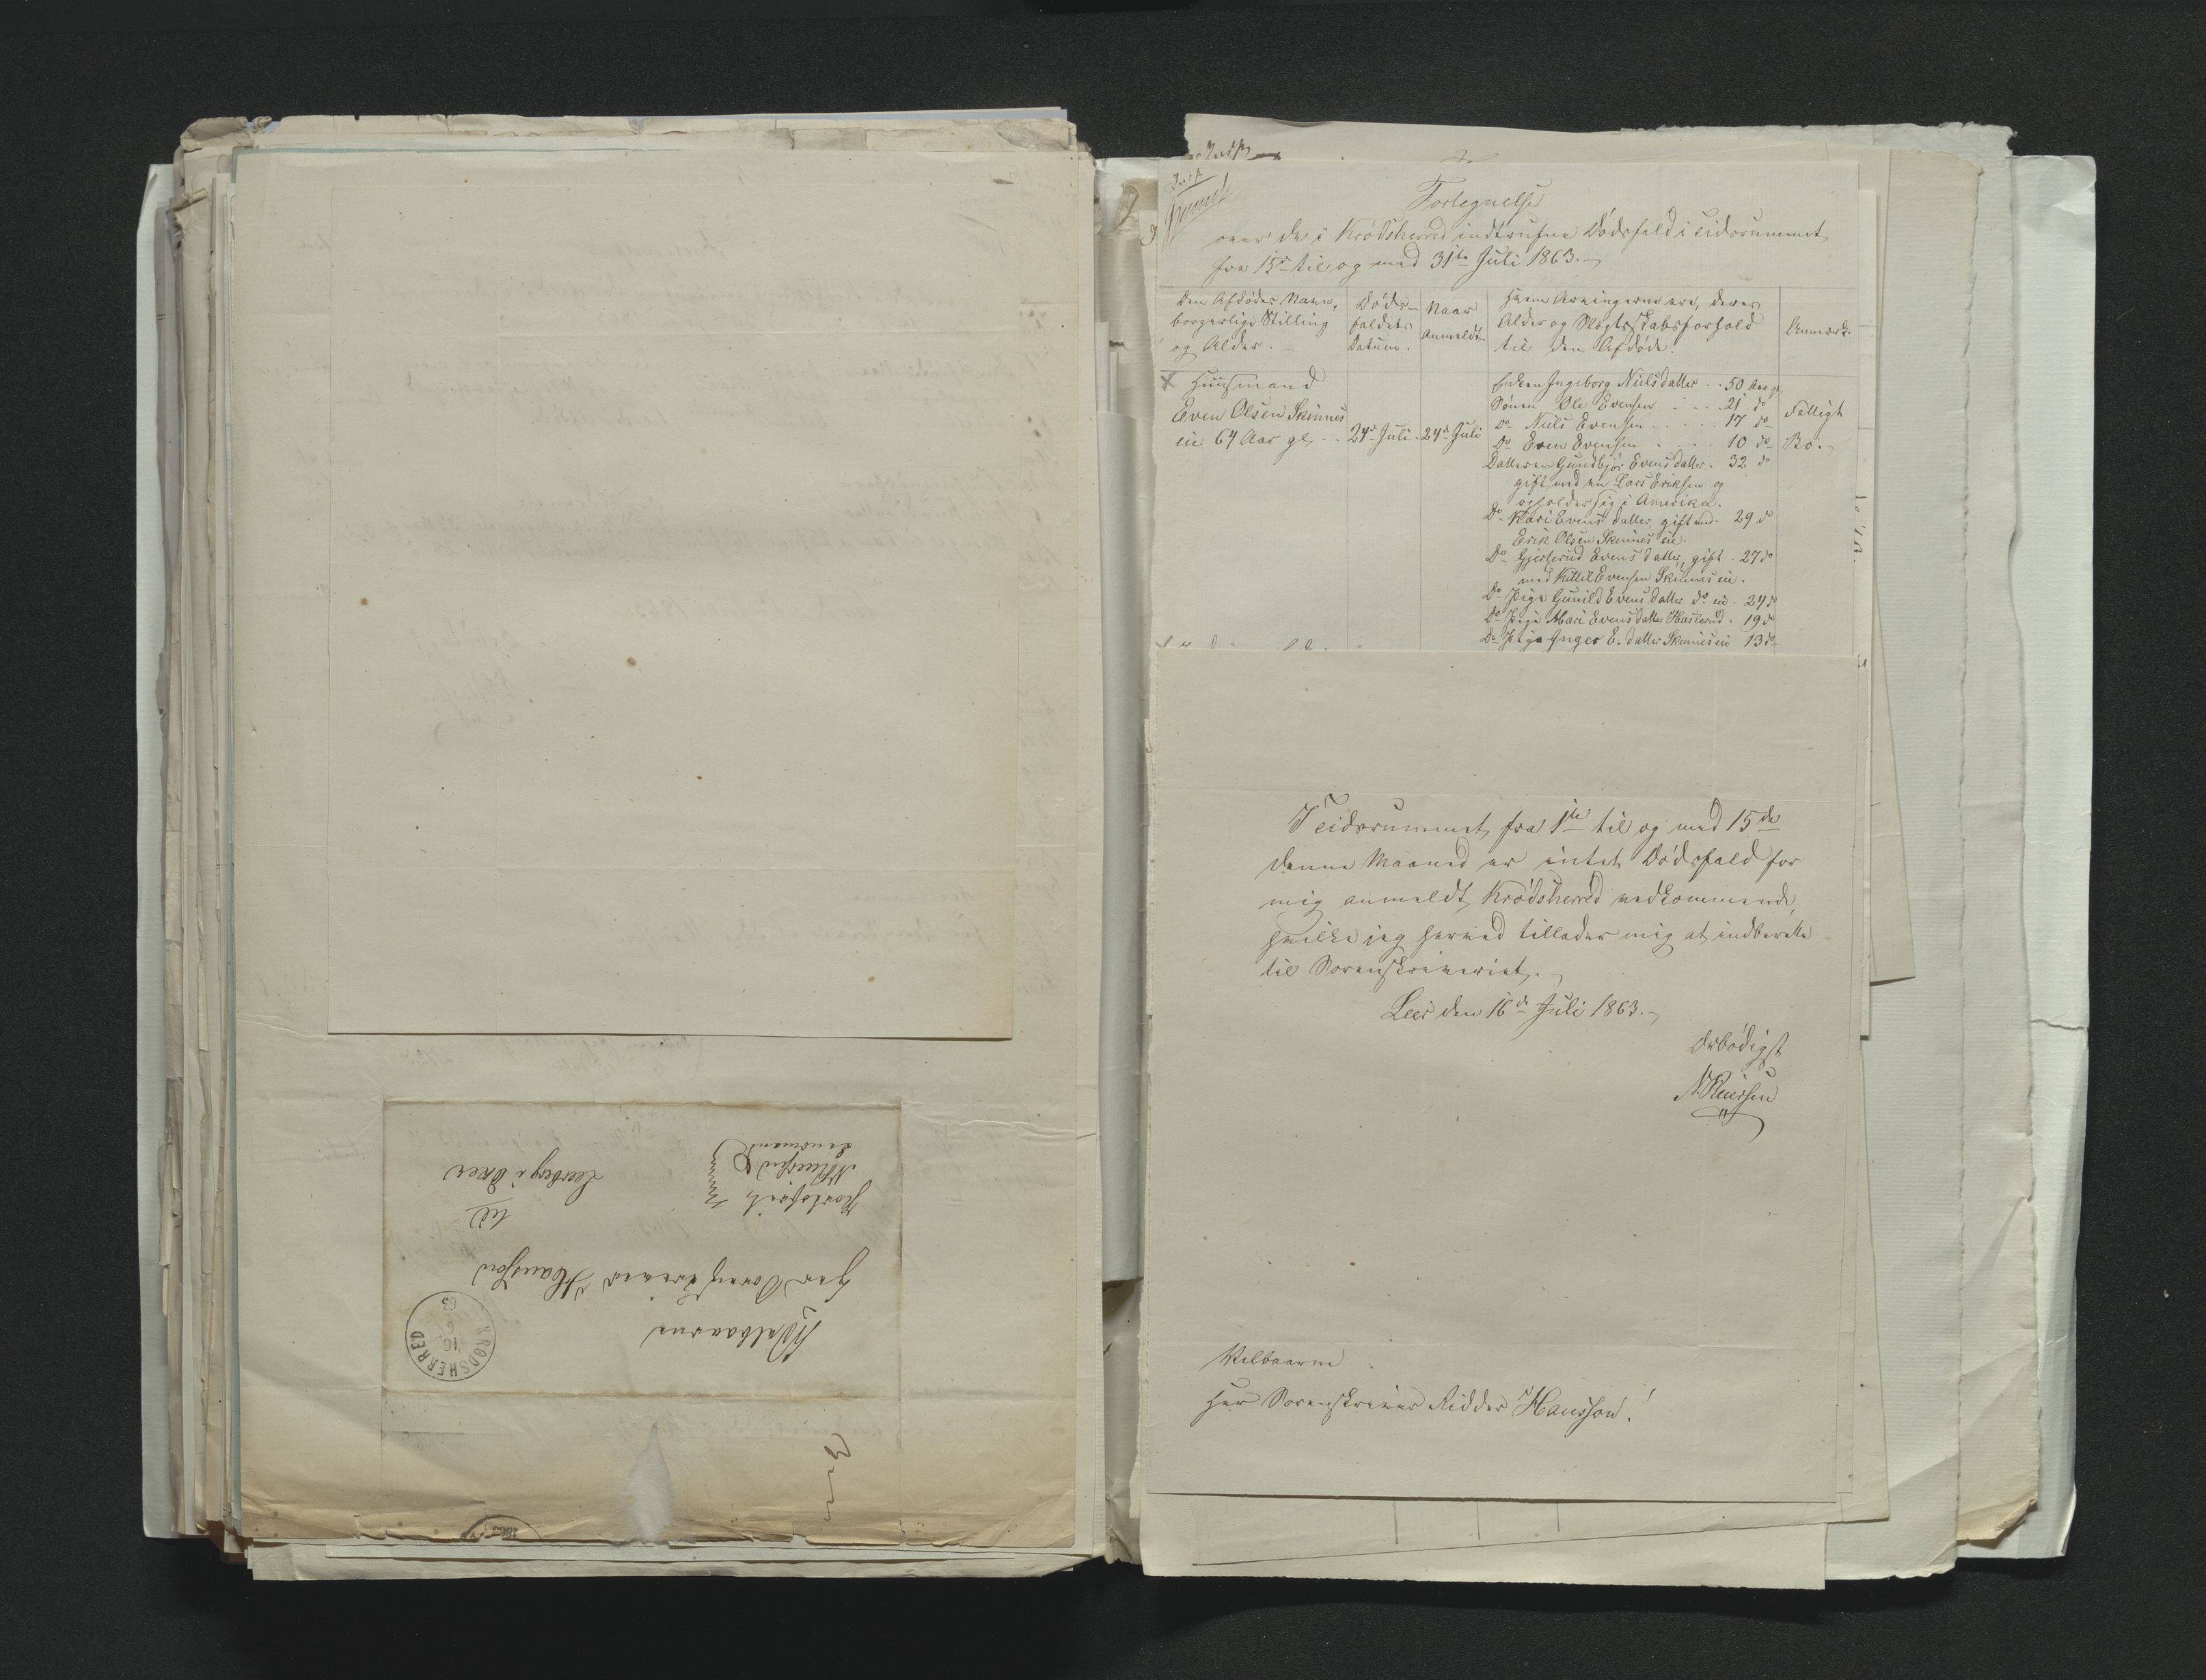 Velbaarne
Herr Sorenskriver Hansson
til
Leerberg i Eker
Portofrit
Lensmand
KRØDSHERRED
16
63
Fortegnelse
over de i Krødsherred indtrufne Dødsfald i Tidsrummet
fra 15de til og med 31te Juli 1863.
Den Afdødes Navn,
borgerlige Stilling
og Alder.
Døds-
faldets
Datum.
Naar
anmeldt.
Hvem Arvingerne ere, deres
Alder og Slægtskabsforhold
til den Afdøde.
Anmærk.
Huusmand
Even Olsen Skinnes
eie 64 Aar gl. 24de Juli. 24de Juli
Enken Ingeborg Nielsdatter 50 Aar gl
Sønnen Ole Evensen 21 do
Do Niels Evensen 17 do
Do Even Evensen 10 do
Fattigt
Bo.
Datteren Gundbjør Evensdatter. 32 do
gift med en Lars Eriksen og
opholder sig i Amerika.
Do Kari Evensdatter, gift med 29 do
Erik Olsen Skinnes eie.
Do Gjertrud Evensdatter, gift 27 do
med Kittil Evensen Skinnes eie.
Do Pige Gunild Evensdatter do eie. 24 do
Do Pige Mari Evensdatter Haslerud. 19 do
Do Pige Inger E.datter Skinnes eie 13 do
I Tidsrummet fra 1ste til og med 15de
denne Maaned er intet Dødsfald for
mig anmeldt, Krødsherred vedkommende,
hvilke jeg herved tillader mig at indberette
til Sorenskriveriet.
Leer den 16de Juli 1863.
Ærbødigst
Velbaarne
Herr Sorenskriver Ridder Hansson!